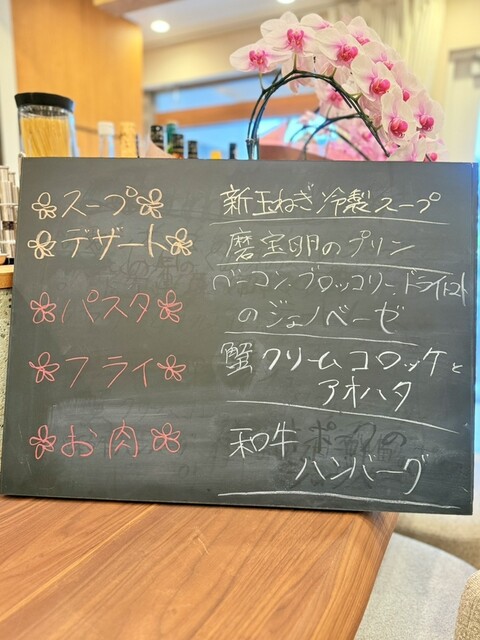 スープ 新玉ねぎ冷製スープ
デザート 磨宝卵のプリン
パスタ ベーコン ブロッコリー ドライトマト
のジェノベーゼ
フライ 蟹クリームコロッケと
アオハタ
お肉 和牛
ハンバーグ